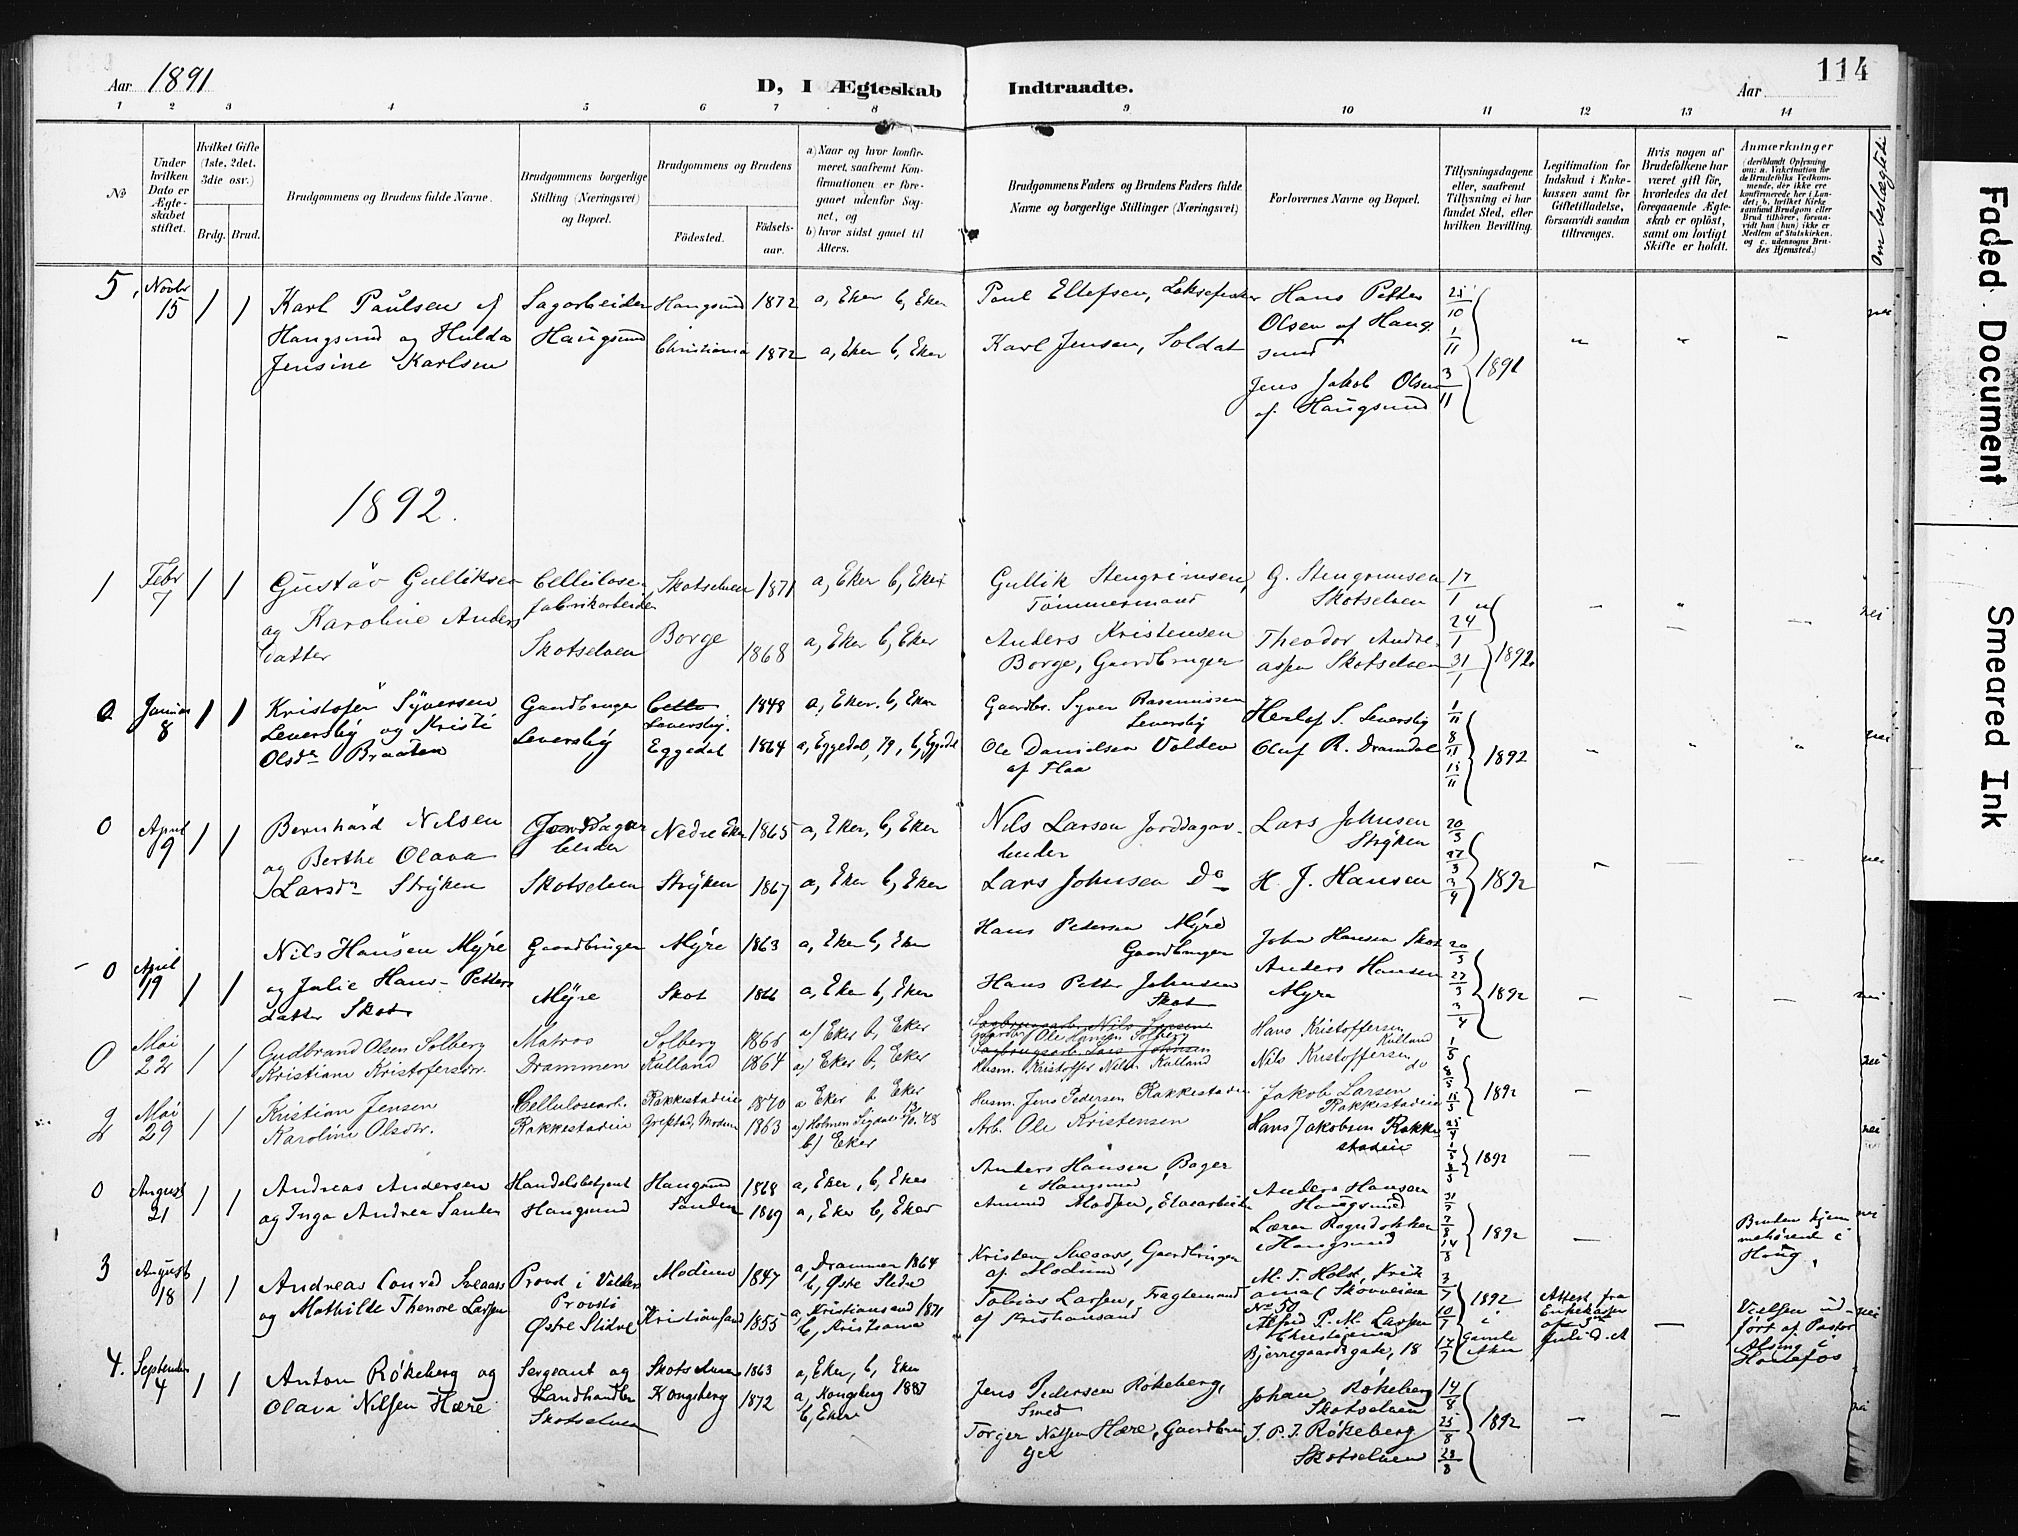 Aar 1891
D, I Ægteskab Indtraadte.
Aar
114
1 2 3 4 5 6 7 8 9 10 11 12 13 14
№
Under hvilken Dato er Ægteskabet stiftet.
Hvilket Gifte (1ste, 2det, 3die osv.)
Brdg. Brud.
Brudgommens og Brudens fulde Navne.
Brudgommens borgerlige Stilling (Næringsvei) og Bopæl.
Brudgommens og Brudens
Fødested.
Fødselsaar.
a) Naar og hvor konfirmeret, saafremt Konfirmationen er foregaaet udenfor Sognet, og
b) hvor sidst gaaet til Alters.
Brudgommens Faders og Brudens Faders fulde Navne og borgerlige Stillinger (Næringsvei)
Forlovernes Navne og Bopæl.
Tillysningsdagene eller, saafremt Tillysning ei har fundet Sted, efter hvilken Bevilling.
Legitimation for Indskud i Enkekassen samt for Giftetilladelse, forsaavidt saadan tiltrænges.
Hvis nogen af Brudefolkene har været gift før, hvorledes da det foregaaende Ægteskab er opløst, samt om lovligt Skifte er holdt.
Anmærkninger
5, Novbr 15 1 1 Karl Paulsen af Haugsund og Hulda Jensine Karlsen
Sagarbeider Haugsund
Haugsund 1872 a, Eker b, Eker
Christiania 1872 a, Eker b, Eker
Poul Ellefsen,
Karl Jensen, Soldat
Hans Petter Olsen af Haugsund
Jens Jakob Olsen af Haugsund
25/10 1/11 3/11 1891
nei
1892.
1 Febr 7 1 1 Gustav Gulliksen og Karoline Andersdatter
Cellulosefabrikarbeider Skotselven
Skotselven 1871 a, Eker b, Eker
Borge 1868 a, Eker b, Eker
Gullik Stengrimsen, Tømmermand
Anders Kristensen Borge, Gaardbruger
G. Stengrimsen Skotselven
Theodor Andreassen Skotselven
17/1 24/1 31/1 1892
nei
Januar 8 1 1 Kristofer Syversen Leversby og Kristi Olsdr Braaten
Gaardbruger Leversby
Leversby. 1848 a, Eker. b, Eker
Eggedal 1864 a, Eggedal, 79, b, Eggedal
Gaardbr. Syver Rasmussen Leversby
Ole Danielsen Volden af Flaa
Herlof S. Leversby
Oluf R. Dramdal
1/11 8/11 15/11 1892
nei
0 April 9 1 1 Bernhard Nilsen og Berthe Olava Larsdr Stryken
Skotselven
Nedre Eker 1865 a, Eker, b, Eker
Stryken 1867 a, Eker b, Eker
Nils Larsen Jorddagarbeider
Lars Johnsen Do
Lars Johnsen Stryken
H. J. Hansen
20/3 27/3 3/4 1892
nei
0 April 19 1 1 Nils Hansen Myre og Julie Hans-Pettersdatter Skot
Gaardbruger Myre
Myre 1863 a, Eker b, Eker
Skot 1866 a, Eker b, Eker
Hans Pedersen Myre Gaardbruger
Hans Petter Johnsen Skot
John Hansen Skot
Anders Hansen Myre
20/3 27/3 3/4 1892
nei
0 Mai 22 1 1 Gudbrand Olsen Solberg
Kristiane Kristofersdr.
Matros Drammen
Solberg 1866 a) Eker b, Eker
Kulland 1864 a) Eker b, Eker
Ole Hansen Solberg
Husm. Kristoffer Nils. Kulland
Hans Kristoffersen Kulland
Nils Kristoffersen do
1/5 8/5 15/5 1892
nei
2 Mai 29 1 1 Kristian Jensen
Karoline Olsdr.
Cellulosearb. Rakkestadeie
Rakkestadeie 1870 a Eker b Eker
Grefstad, Modum 1863 a) Holmen Sigdal
b) Eker
Husm. Jens Pedersen Rakkestadeie
Arb. Ole Kristensen
Jakob Larsen Rakkestadeie
Hans Jakobsen Rakkestadeie
1892
nei
0 August 21 1 1 Andreas Andersen og Inga Andrea Sanden
Handelsbetjent Haugsund
Haugsund 1868 a, Eker, b, Eker
Sanden 1869 a, Eker b, Eker
Anders Hansen, Bager i Haugsund
Amund Madsen,
Anders Hansen Haugsund
i Haugsund
31/7 7/8 14/8 1892
nei
Bruden hjemmehørende i Haug.
3 August 18 1 1 Andreas Conrad Sveaas og Mathilde Thenore Larsen
Provst i Valders Provsti Østre Slidre
Modum 1847 a, Drammen 1864 b, Østre Slidre
Kristiansand 1855 a, Kristiansand 1871 b, Kristiania
Kristen Sveaas, Gaardbruger af Modum
Tobias Larsen, Fragtemand af Kristiansand
M. T. Holst,
No 50
Alfred P. M. Larsen Christiania
Bjerregaardsgate, 18
3/7 10/7 17/7 1892 i Gamle Aker
Attest fra Enkekassen af 3die Juli d. A
nei
Vielsen udført af Pastor Alsing i Honefos
4. September 4 1 1 Anton Røkeberg og Olava Nilsen Hære
Sergeant og Landhandler Skotselven
Skotselven 1863 a, Eker, b, Eker
Kongsberg 1872 a, Kongsberg 1887 b, Eker
Jens Pedersen Røkeberg, Smed
Torger Nilsen Hære, Gaardbruger
Johan Røkeberg Skotselven
J. P. J. Røkeberg Skotselven
14/8 25/8 28/8 1892
nei
Faded Document
Smeared Ink